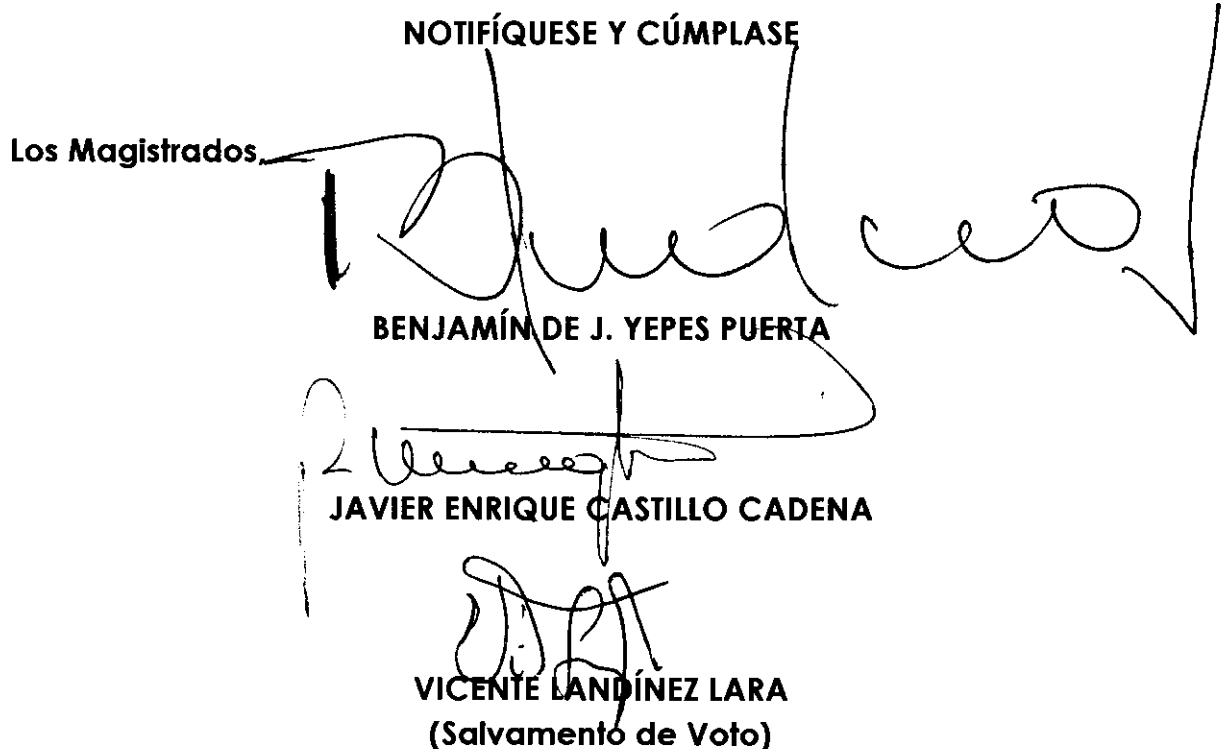 NOTIFÍQUESE Y CÚMPLASE
Los Magistrados,
BENJAMÍN DE J. YEPES PUERTA
JAVIER ENRIQUE CASTILLO CADENA
VICENTE LANDÍNEZ LARA
(Salvamento de Voto)